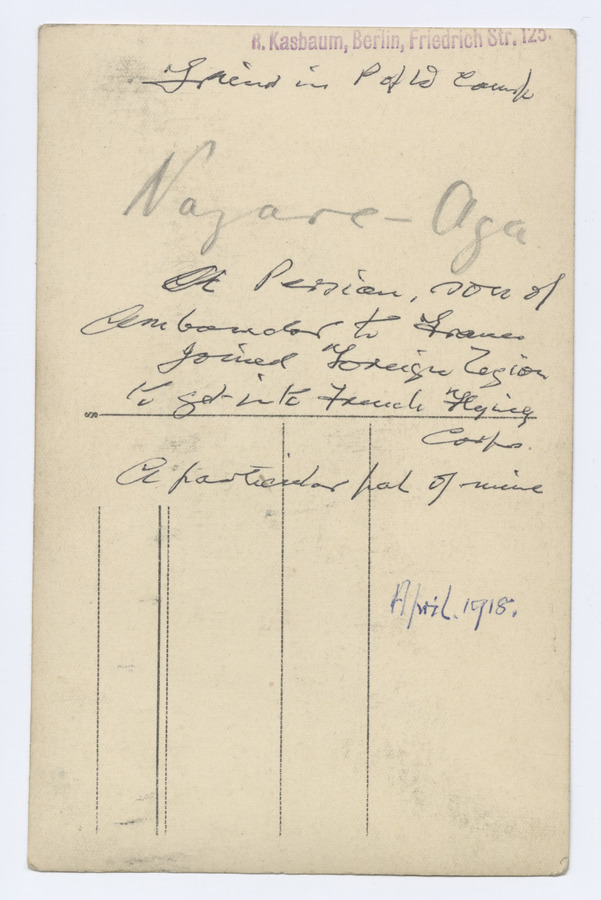 R. Kasbaum, Berlin, Friedrich Str. 125.
Friend in P of W Camp
Nazare-Aga
A Persian, son of
Ambassador to France
Joined Foreign Legion
to get into French Flying
Corps.
A particular pal of mine
April. 1918.